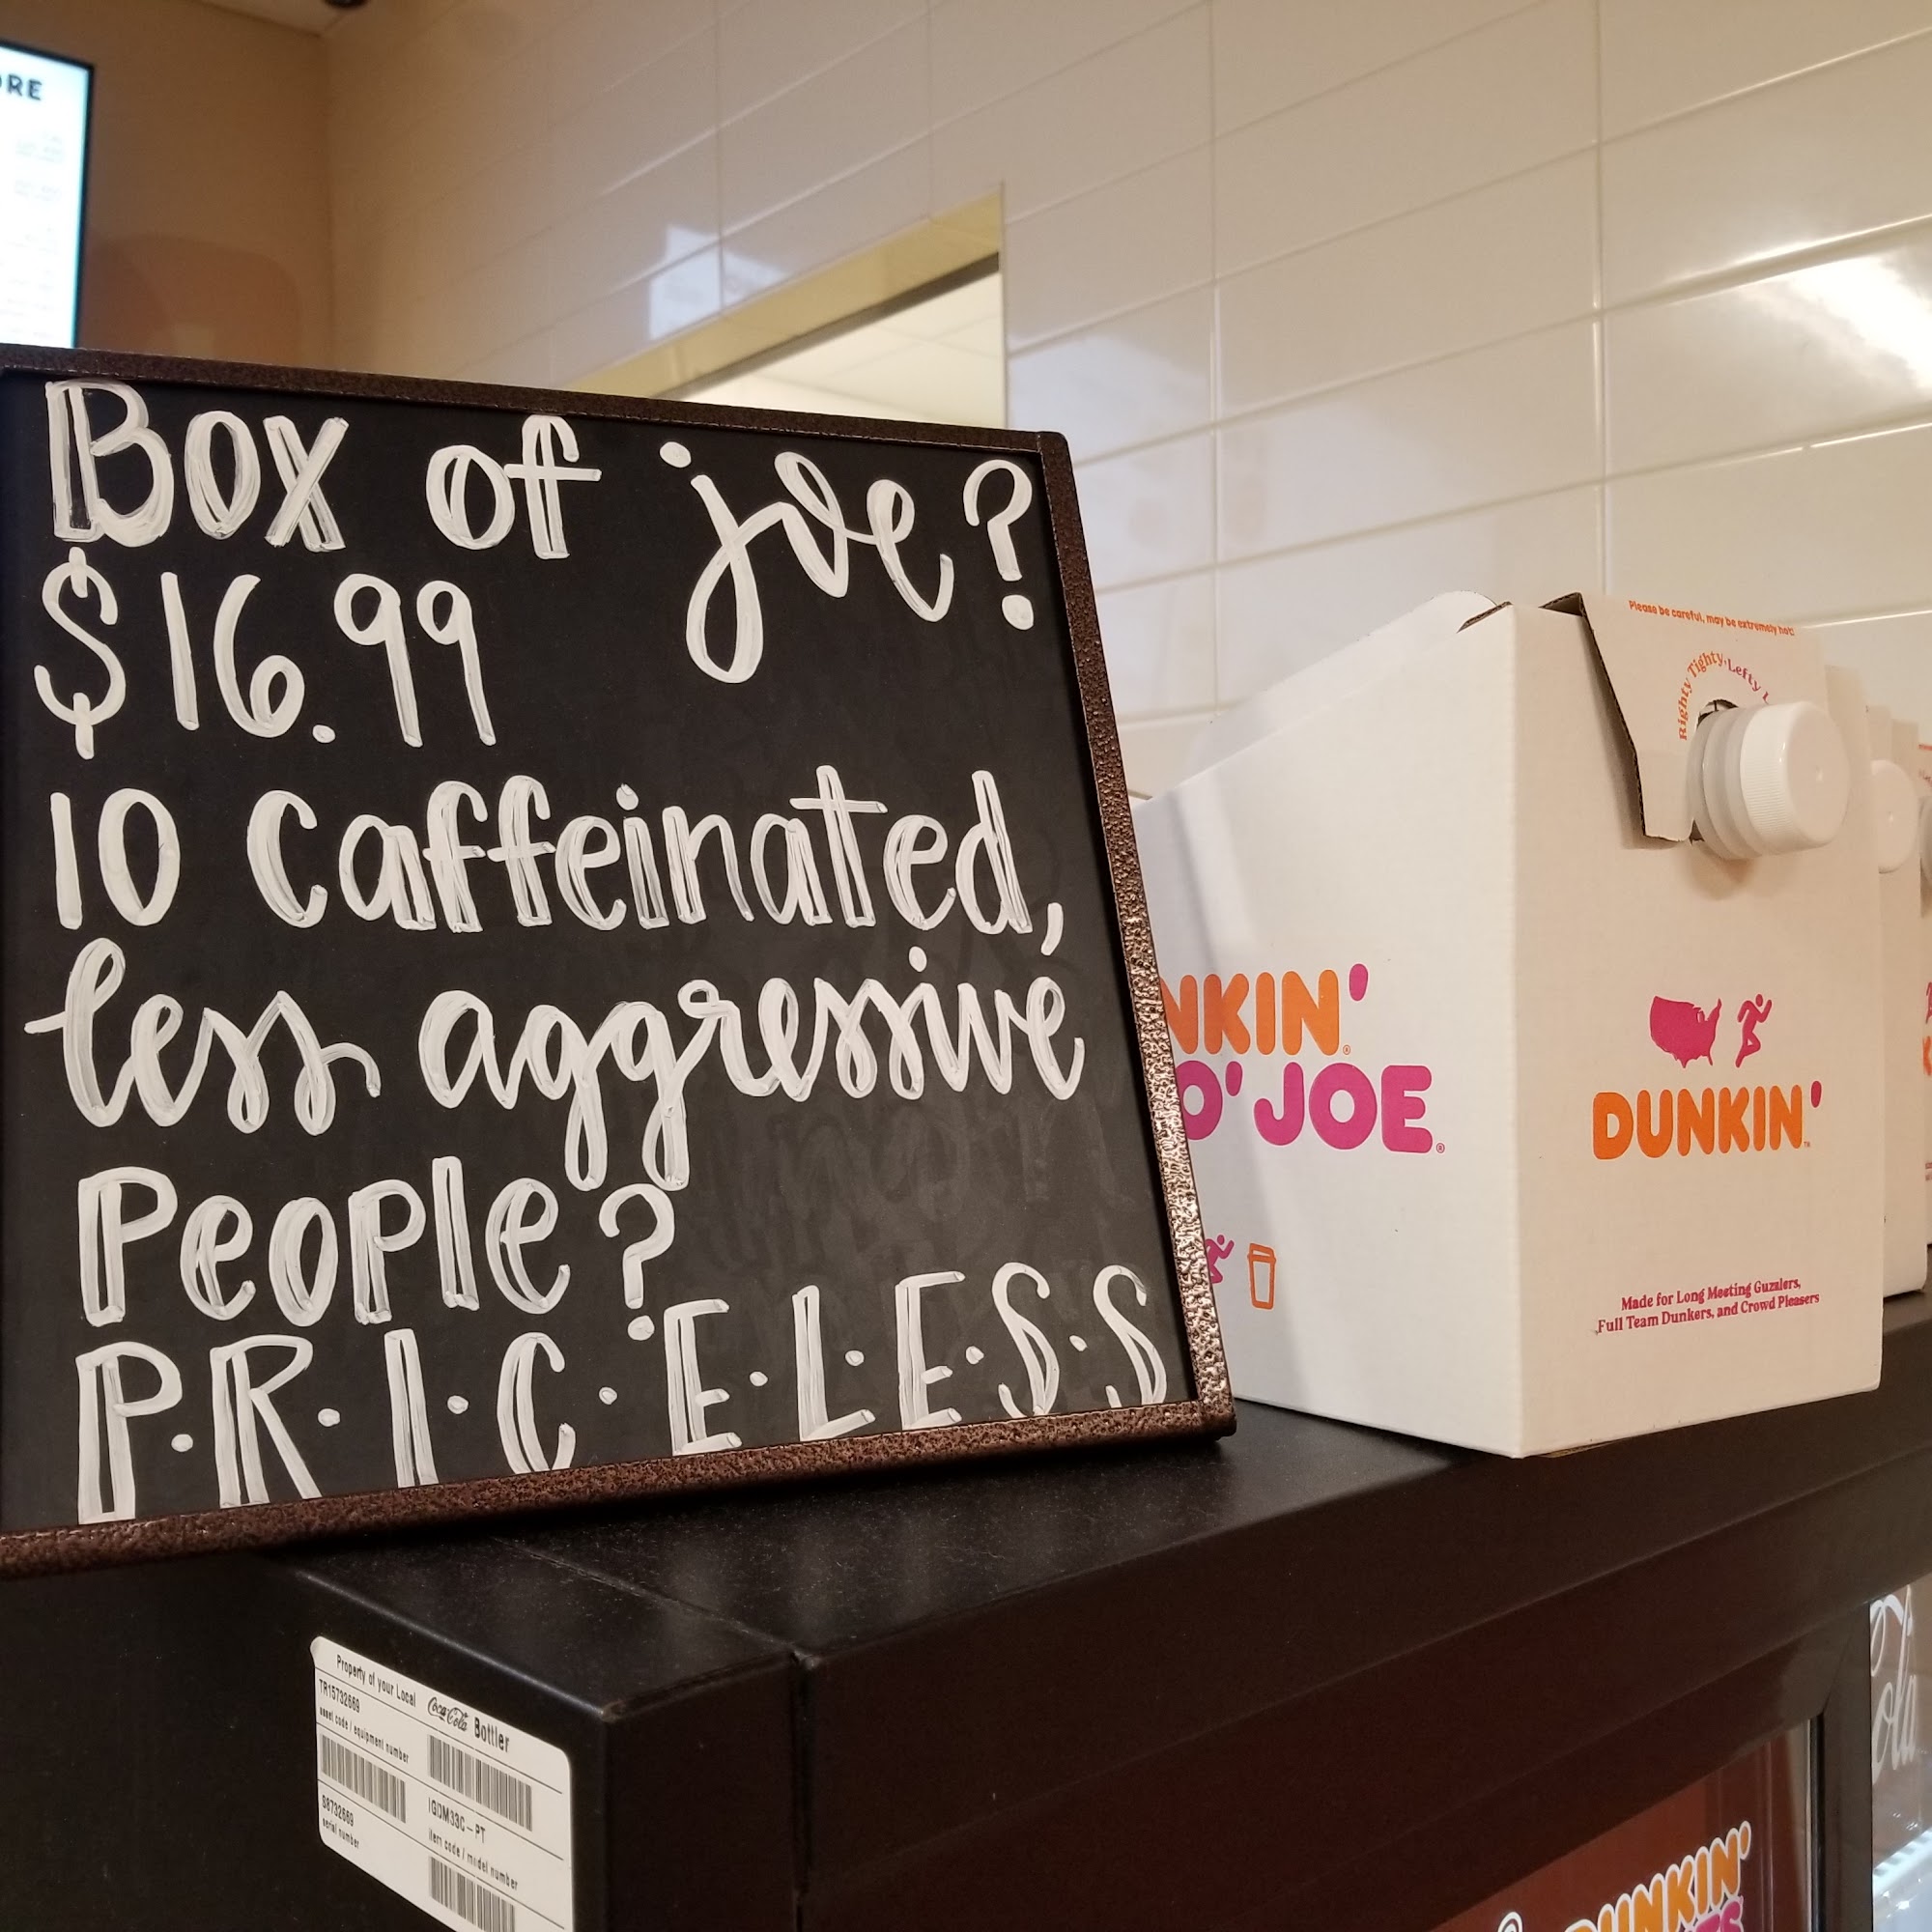 Box of joe?
$16.99
10 Caffeinated,
less aggressive
People?
P.R.I.C.E.L.E.S.S
Please be careful, may be extremely hot!
Righty Tighty, Lefty
NKIN'
O' JOE
DUNKIN'
Made for Long Meeting Guzzlers,
Full Team Dunkers, and Crowd Pleasers
Property of your Local Coca-Cola Bottler
TR15732669
asset code / equipment number
IGDM33C-PT
item code / model number
S8732669
serial number
DUNKIN'
Cola
ORE